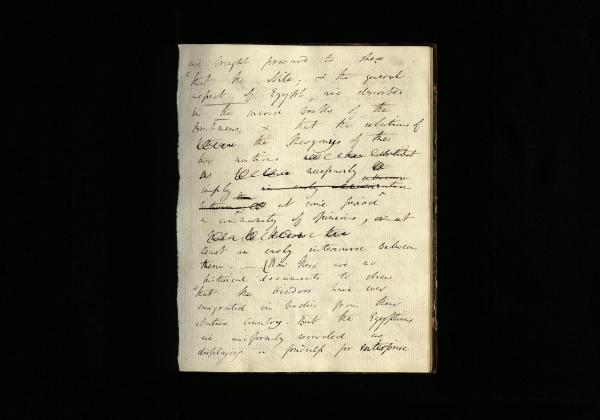 are brought forward to shew
"that the Nile, & the general
aspect of Egypt, are described
in the sacred books of the
& that the relations of
the Theogonies of the
two nations
necessarily
imply
at some period
a community of opinions, or at
least an early intercourse between
them. — Now there are no
historical documents to shew
"that the Hindoos have ever
emigrated in bodies from their
Native country. But the Egyptians
are uniformly recorded as
displaying a for enterprise